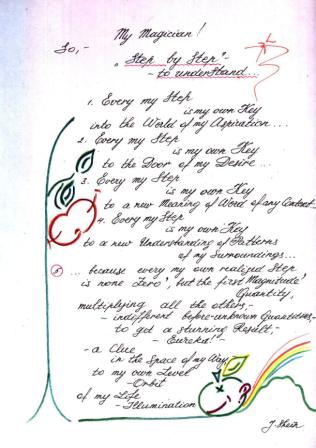 My Magician!
So,-
"Step by Step"-
- to understand...
1. Every my Step
is my own Key
into the World of my Aspiration...
2. Every my Step
is my own Key
to the Door of my Desire...
3. Every my Step
is my own Key
to a new Meaning of Word of any Context
4. Every my Step
is my own Key
to a new Understanding of Patterns
of my Surroundings...
5 ... because every my own realized Step
is none 'Zero', but the first Magnitude'
Quantity,
multiplying all the others,-
- indifferent before-unknown Quantities,-
to get a stunning Result,-
- Eureka!-
- a Clue
in the Space of my Way
to my own Level
- Orbit
of my Life
- Illumination